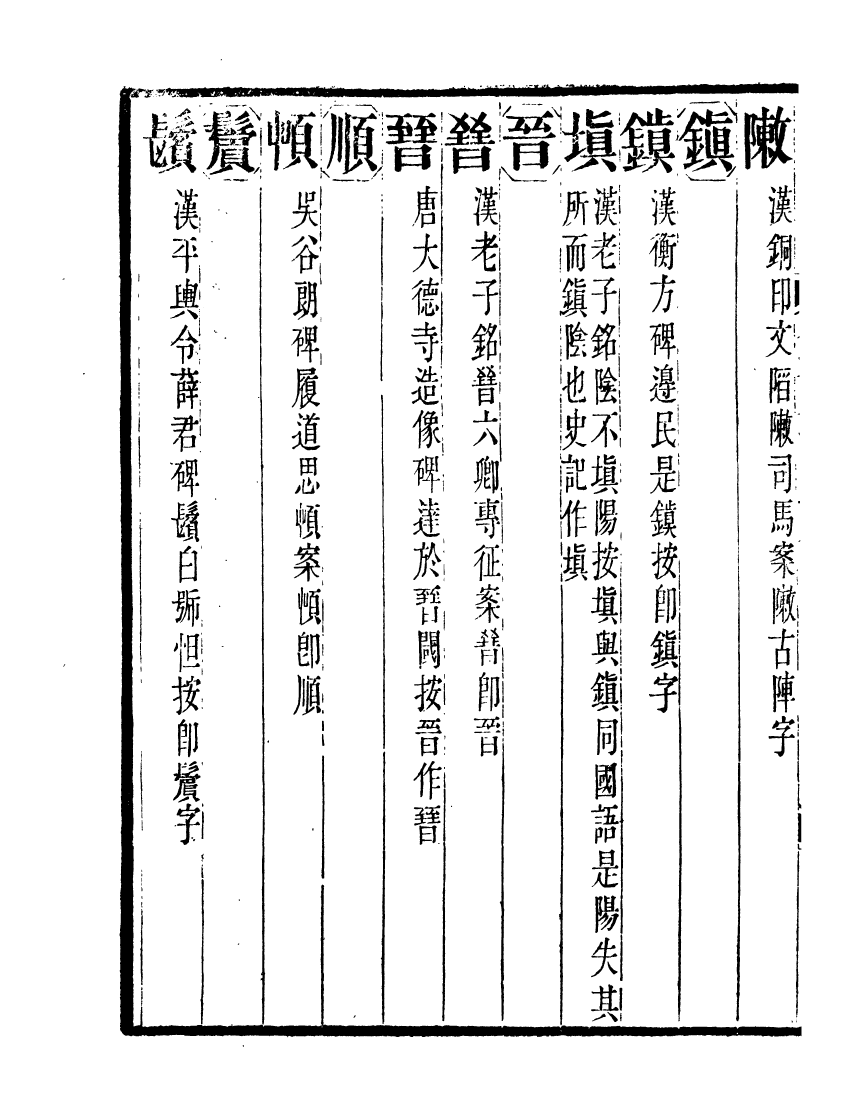 敶 漢銅印文陷敶司馬案敶古陣字
鎭
鏌 漢衡方碑邊民是鏌按卽鎭字
塡 漢老子銘陰不塡陽按塡與鎭同國語是陽失其
所而鎭陰也史記作塡
晉
漢老子銘晉六卿專征案晉卽晉
唐大德寺造像碑達於晉閫按晉作
順
吳谷朗碑履道思案卽順
鬢
漢平輿令薛君碑白號怛按卽鬢字